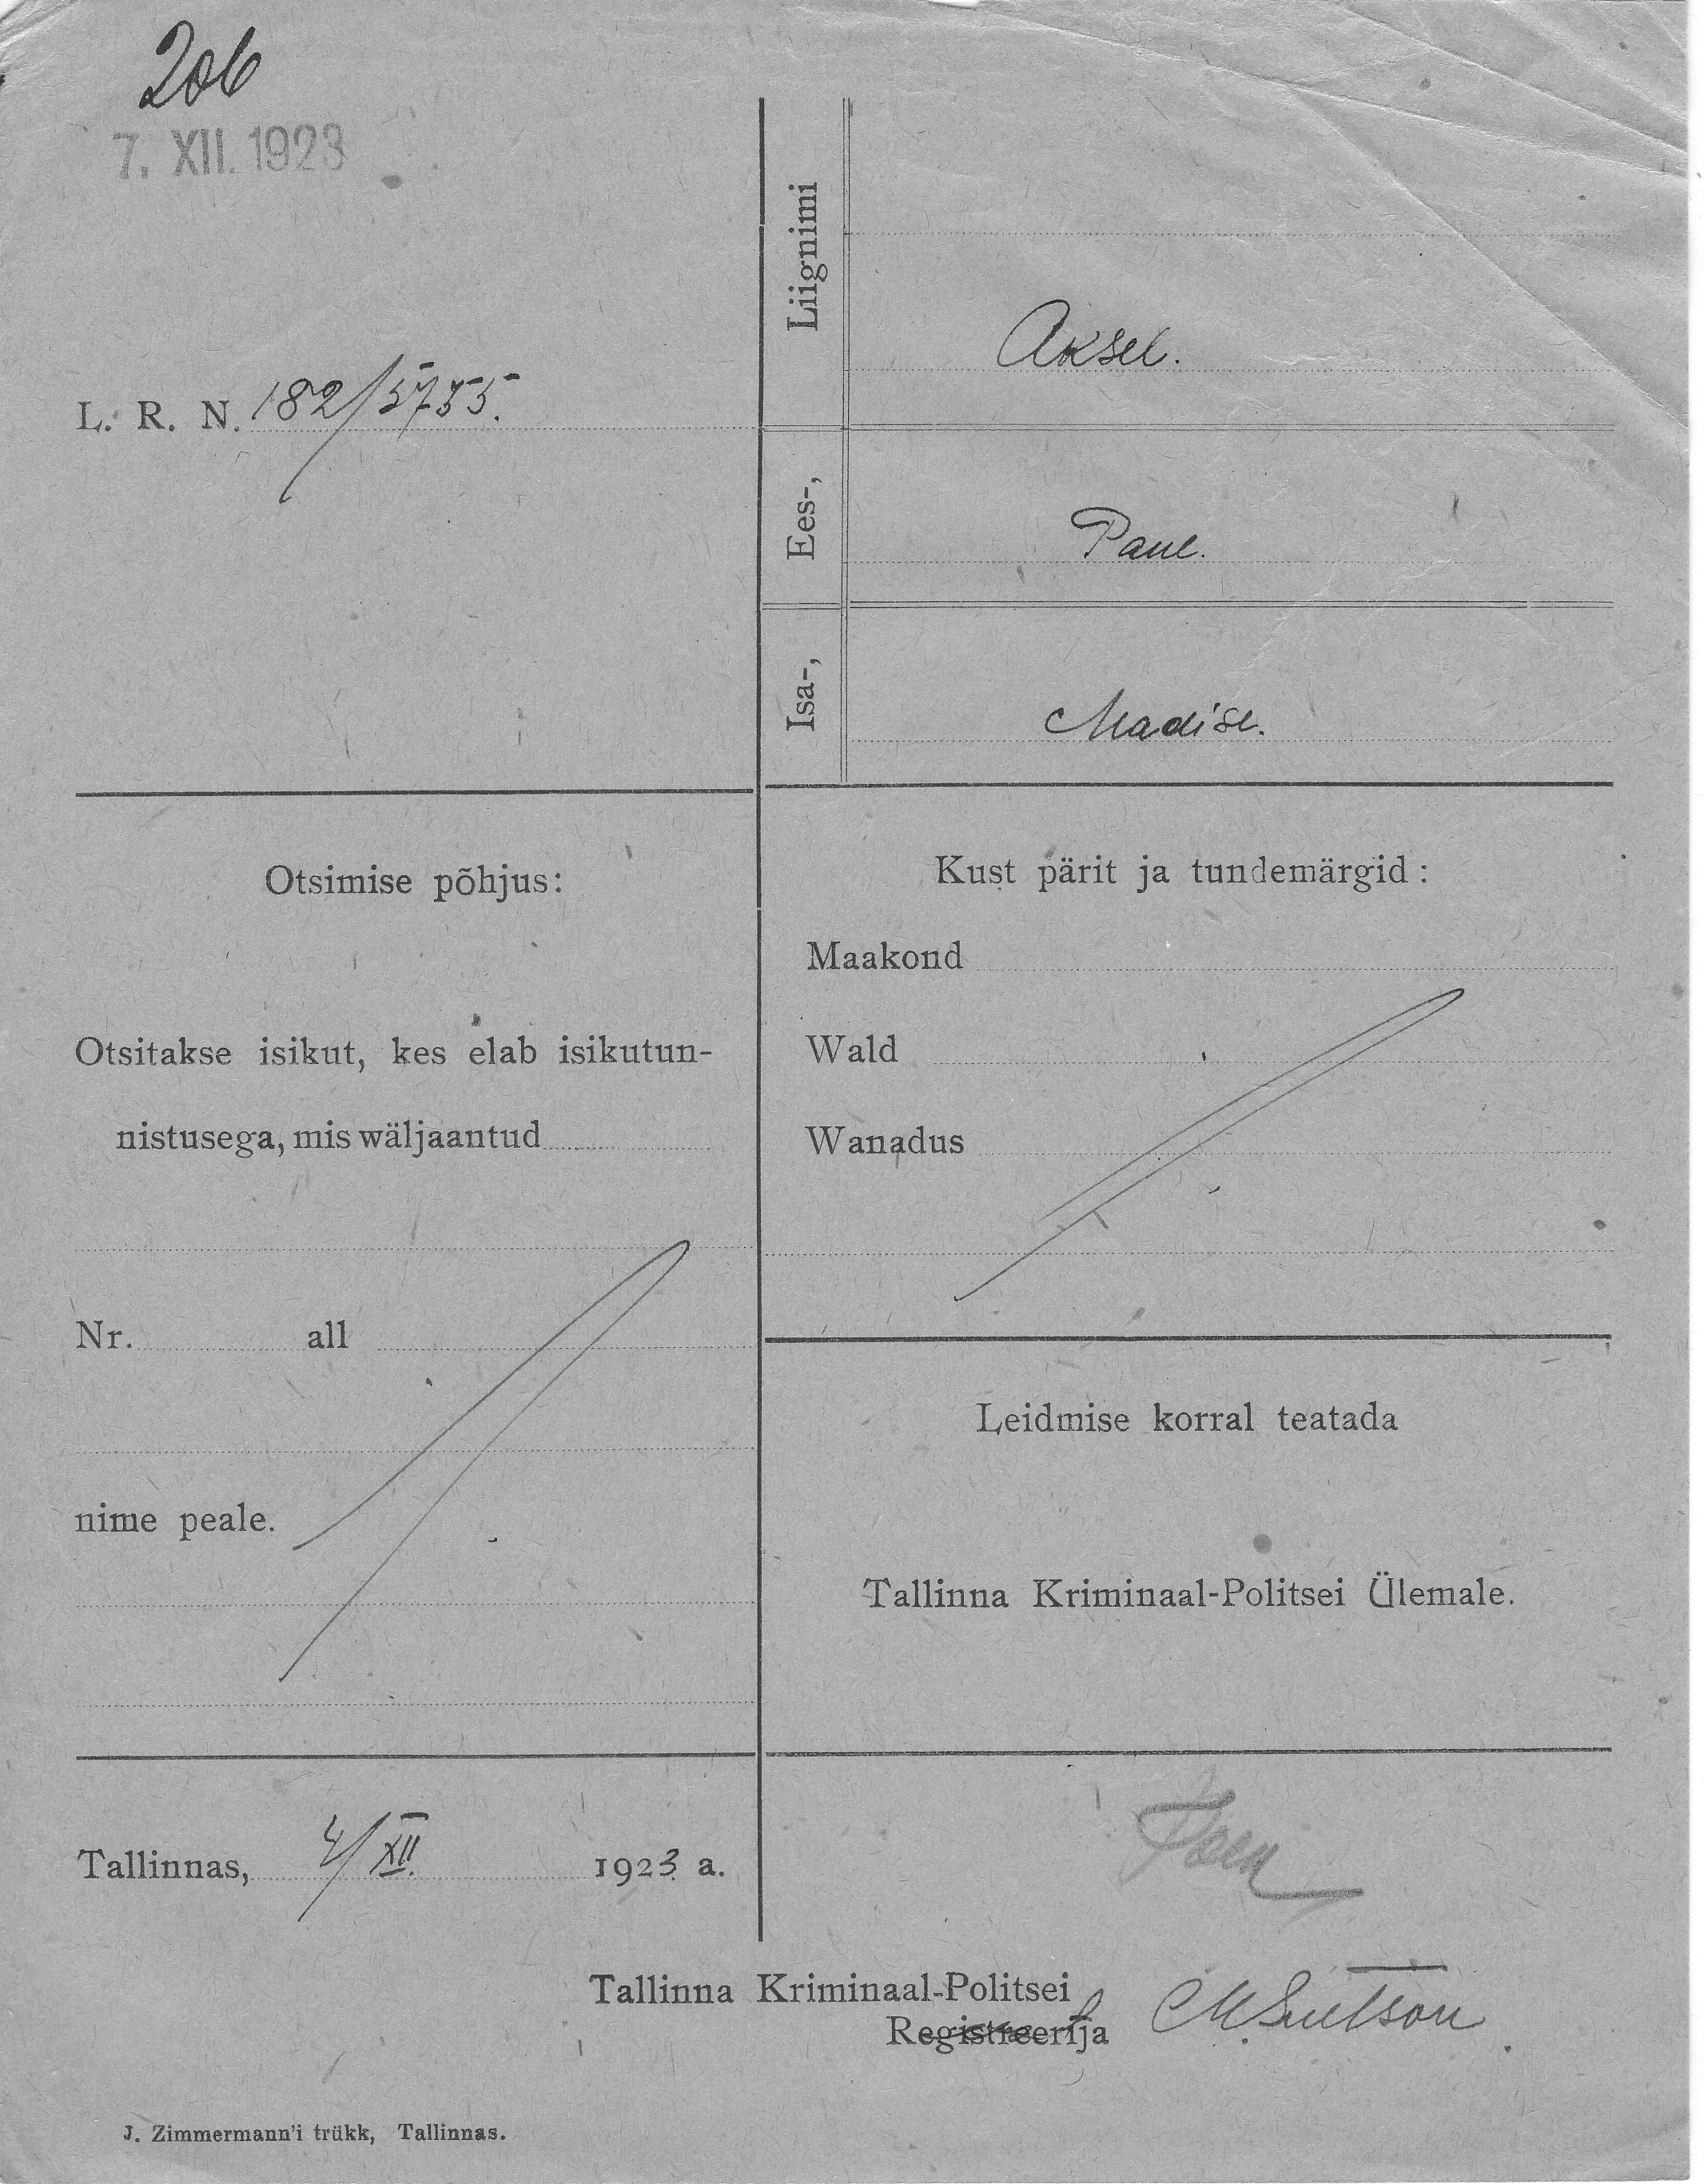 206
7. XII. 1923
L. R. N. 182/5755.
Liignimi
Aksel.
Ees-,
Paul.
Isa-,
Madise.
Otsimise põhjus:
Otsitakse isikut, kes elab isikutun-
nistusega, mis wäljaantud
Nr. all
nime peale.
Kust pärit ja tundemärgid:
Maakond
Wald
Wanadus
Leidmise korral teatada
Tallinna Kriminaal-Politsei Ülemale.
Tallinnas, 4/XII. 1923. a.
Tallinna Kriminaal-Politsei
Registreerija
J. Zimmermann'i trükk, Tallinnas.